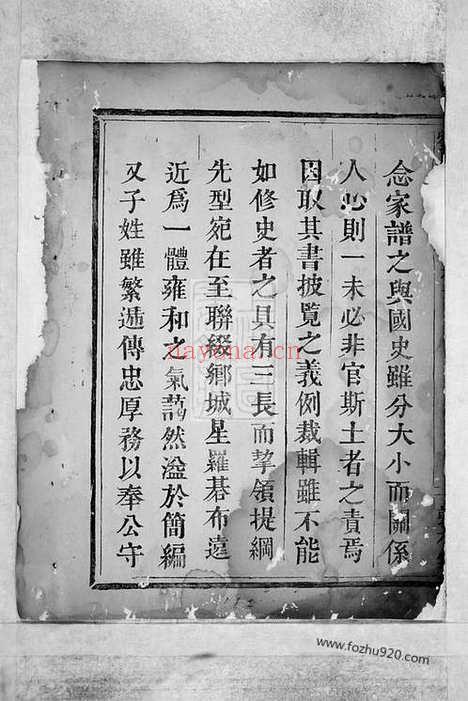 念家譜之與國史雖分大小而關係
人心則一未必非官斯土者之責焉
因取其書披覽之義例裁輯雖不能
如修史者之具有三長而挈領提綱
先型宛在至聯綴鄉城星羅碁布遠
近為一體雍和之氣藹然溢於簡編
又子姓雖繁遞傳忠厚務以奉公守
nayana.cn
www.fozhu920.com